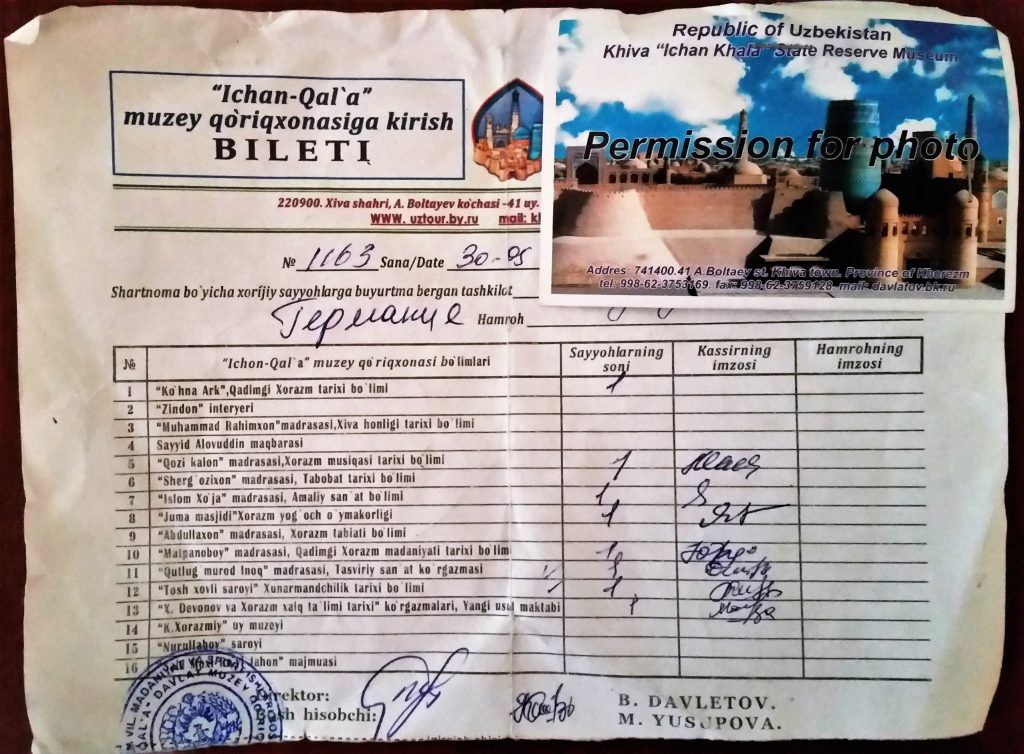 "Ichan-Qal`a"
muzey qo`riqxonasiga kirish
BILETI
220900. Xiva shahri, A. Boltayev ko`chasi -41 uy.
WWW. uztour.by.ru mail:
Republic of Uzbekistan
Khiva "Ichan Khala" State Reserve Museum
Permission for photo
Addres: 741400.41 A.Boltaev st. Khiva town. Province of Khorezm
tel: 998-62-3753169. fax: 998-62-3759128. mail: davlatov bk.ru
№ 1163 Sana/Date 30-05
Shartnoma bo`yicha xorijiy sayyohlarga buyurtma bergan tashkilot
Германие Hamroh
№ "Ichon-Qal`a" muzey qo`riqxonasi bo`limlari Sayyohlarning soni Kassirning imzosi Hamrohning imzosi
1 "Ko`hna Ark",Qadimgi Xorazm tarixi bo`limi 1
2 "Zindon" interyeri
3 "Muhammad Rahimxon"madrasasi,Xiva honligi tarixi bo`limi
4 Sayyid Alovuddin maqbarasi
5 "Qozi kalon" madrasasi,Xorazm musiqasi tarixi bo`limi 1
6 "Sherg`ozixon" madrasasi, Tabobat tarixi bo`limi
7 "Islom Xo`ja" madrasasi, Amaliy san`at bo`limi 1
8 "Juma masjidi"Xorazm yog`och o`ymakorligi 1
9 "Abdullaxon" madrasasi, Xorazm tabiati bo`limi
10 "Matpanoboy" madrasasi, Qadimgi Xorazm madaniyati tarixi bo`limi 1
11 "Qutlug murod Inoq" madrasasi, Tasviriy san`at ko`rgazmasi 1
12 "Tosh xovli saroyi" Xunarmandchilik tarixi bo`limi 1
13 "X. Devonov va Xorazm xalq ta`limi tarixi" ko`rgazmalari, Yangi usul maktabi 1
14 "K.Xorazmiy" uy muzeyi
15 "Nurullaboy" saroyi
16 majmuasi
Direktor: B. DAVLETOV.
hisobchi: M. YUSUPOVA.